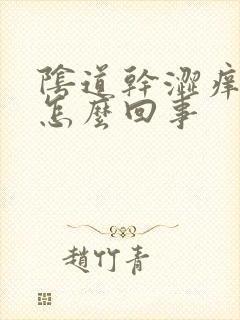 陰道幹澀痒
怎麼回事
趙竹青